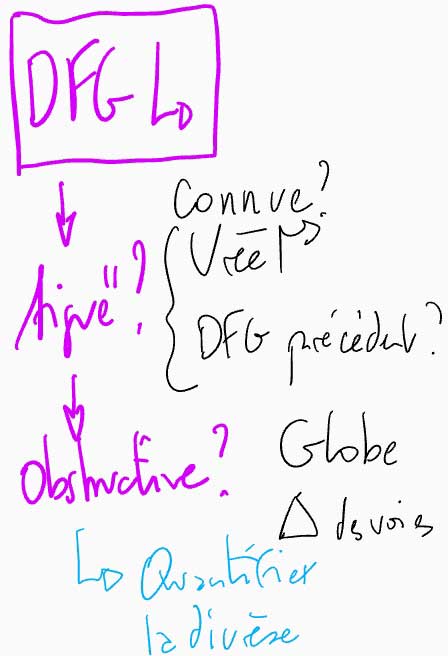 DFG ↳
↓
Aiguë"?
Connue?
Urée ↗
DFG précédent?
↓
Obstructive?
Globe
Δ des voies
↳ Quantifier
la diurèse